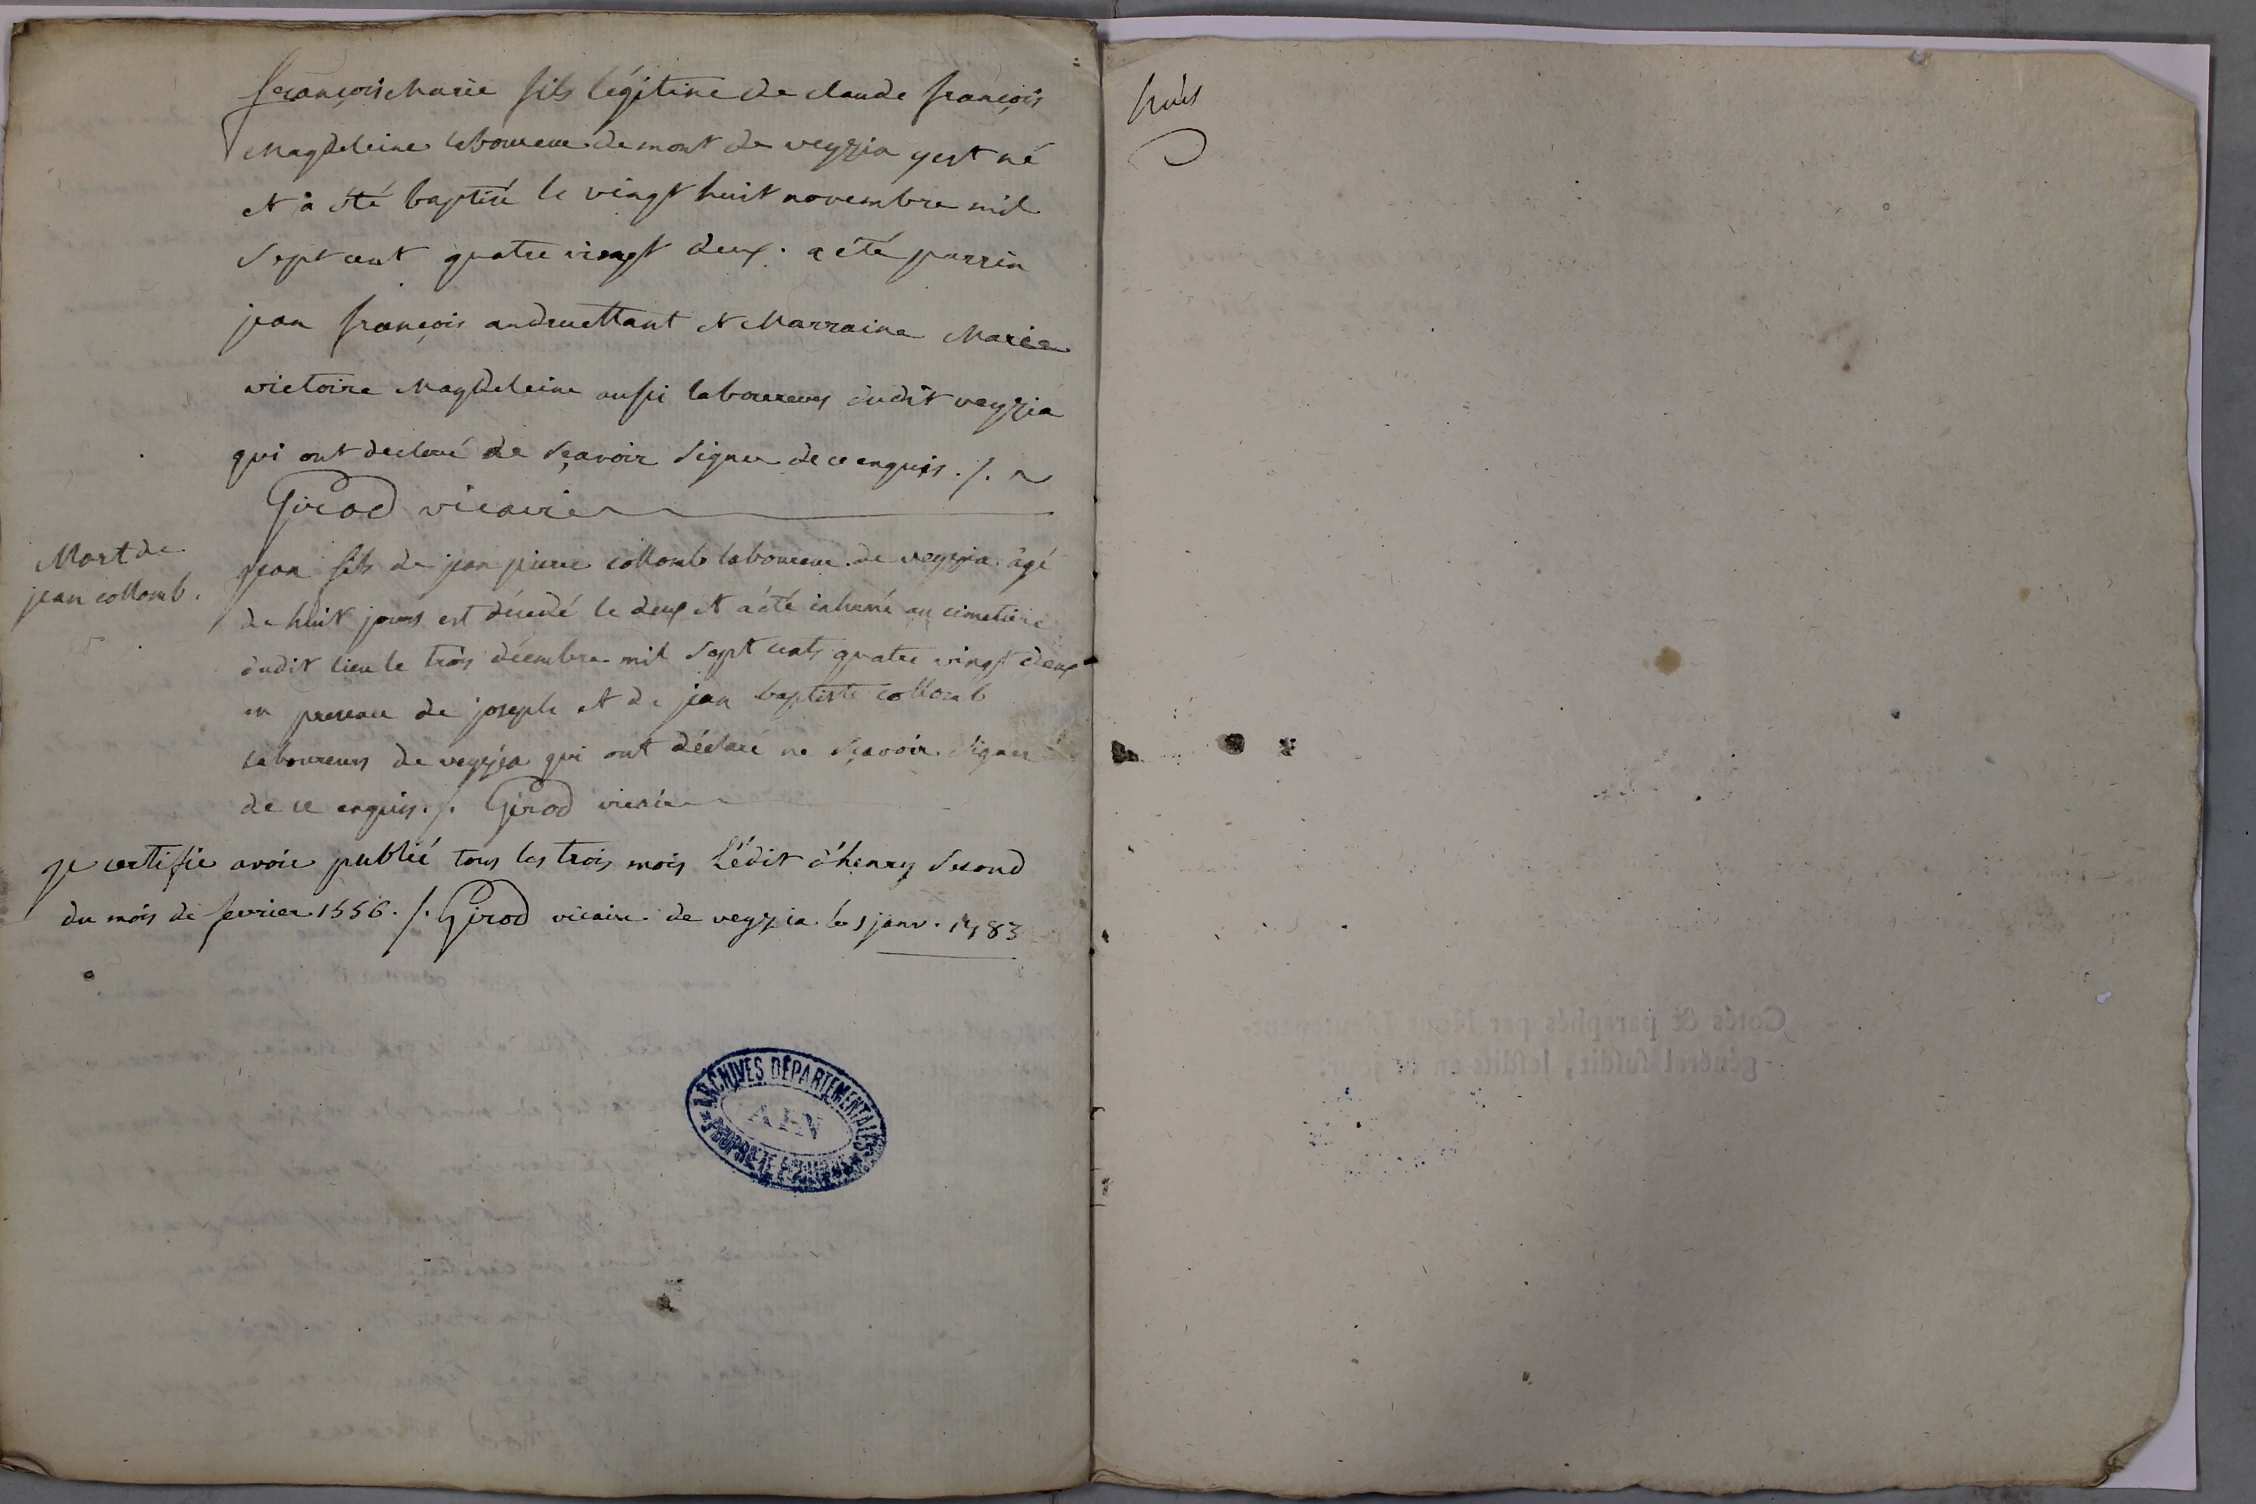 françois Marie fils légitime de claude françois
Magdeleine laboureur de mont de veyzia y est né
et a été baptisé le vingt huit novembre mil
sept cent quatre vingt deux. a été parrin
jean françois andruettant et Marraine Marie
victoire Magdeleine aussi laboureurs dudit veyzia
qui ont declaré ne sçavoir signer de ce enquis ./.
Girod vicaire
Mort de
jean collomb.
jean fils de jean pierre collomb laboureur de veyzia agé
de huit jours est décedé le deux et a été inhumé au cimetiere
dudit lieu le trois décembre mil sept cents quatre vingt deux
en presence de joseph et de jean baptiste collomb
laboureurs de veyzia qui ont déclaré ne sçavoir signer
de ce enquis ./. Girod vicaire
je certifie avoir publié tous les trois mois L'édit d'henry second
du mois de fevrier 1556 ./. Girod vicaire de veyzia le 1 janv. 1783
ARCHIVES DÉPARTEMENTALES
AIN
PROPRIÉTÉ PUBLIQUE
Cotés & paraphés par Nous Lieutenant-
général susdit, lesdits an & jour.